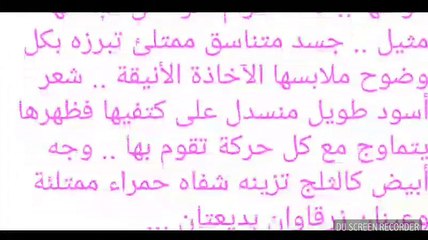 مثيل .. جسد متناسق ممتلئ تبرزه بكل
وضوح ملابسها الآخاذة الأنيقة .. شعر
أسود طويل منسدل على كتفيها فظهرها
يتماوج مع كل حركة تقوم بها .. وجه
أبيض كالثلج تزينه شفاه حمراء ممتلئة
وعينان زرقاوان بديعتان ...
DU SCREEN RECORDER